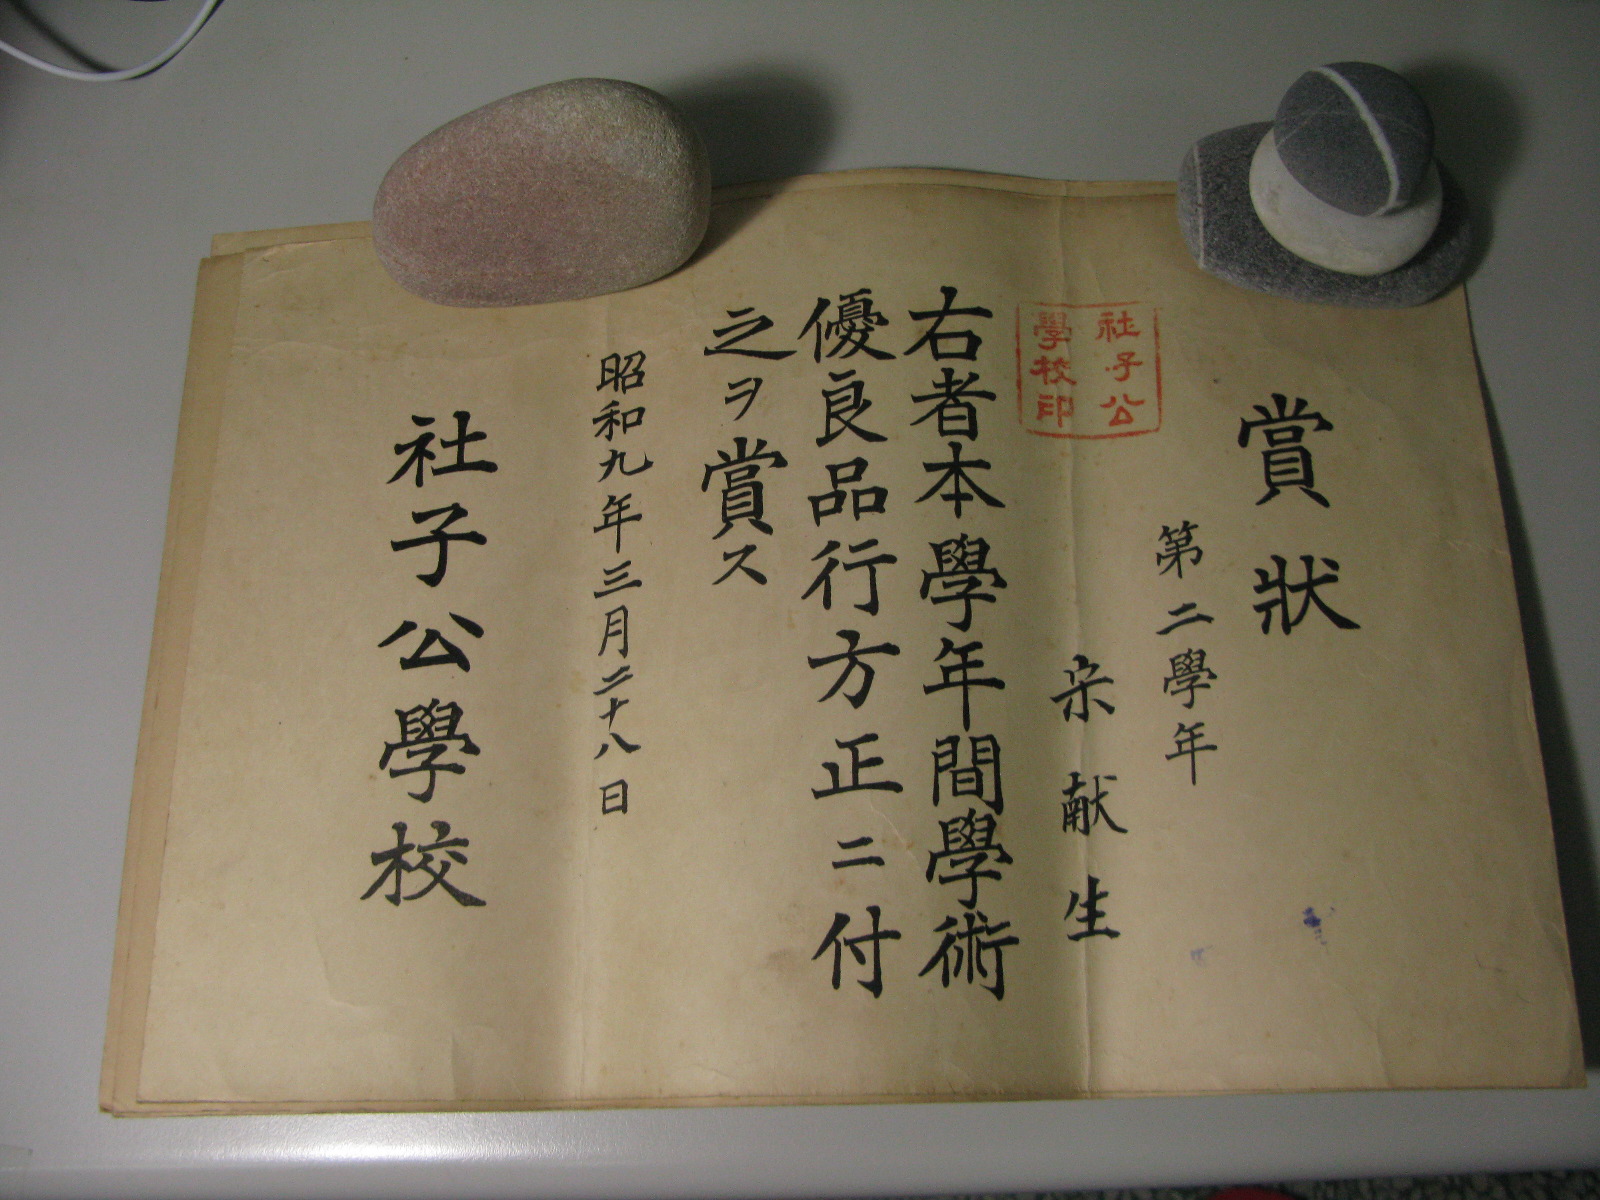 賞狀
第二學年
宋献生
社子公
學校印
右者本學年間學術
優良品行方正ニ付
之ヲ賞ス
昭和九年三月二十八日
社子公學校